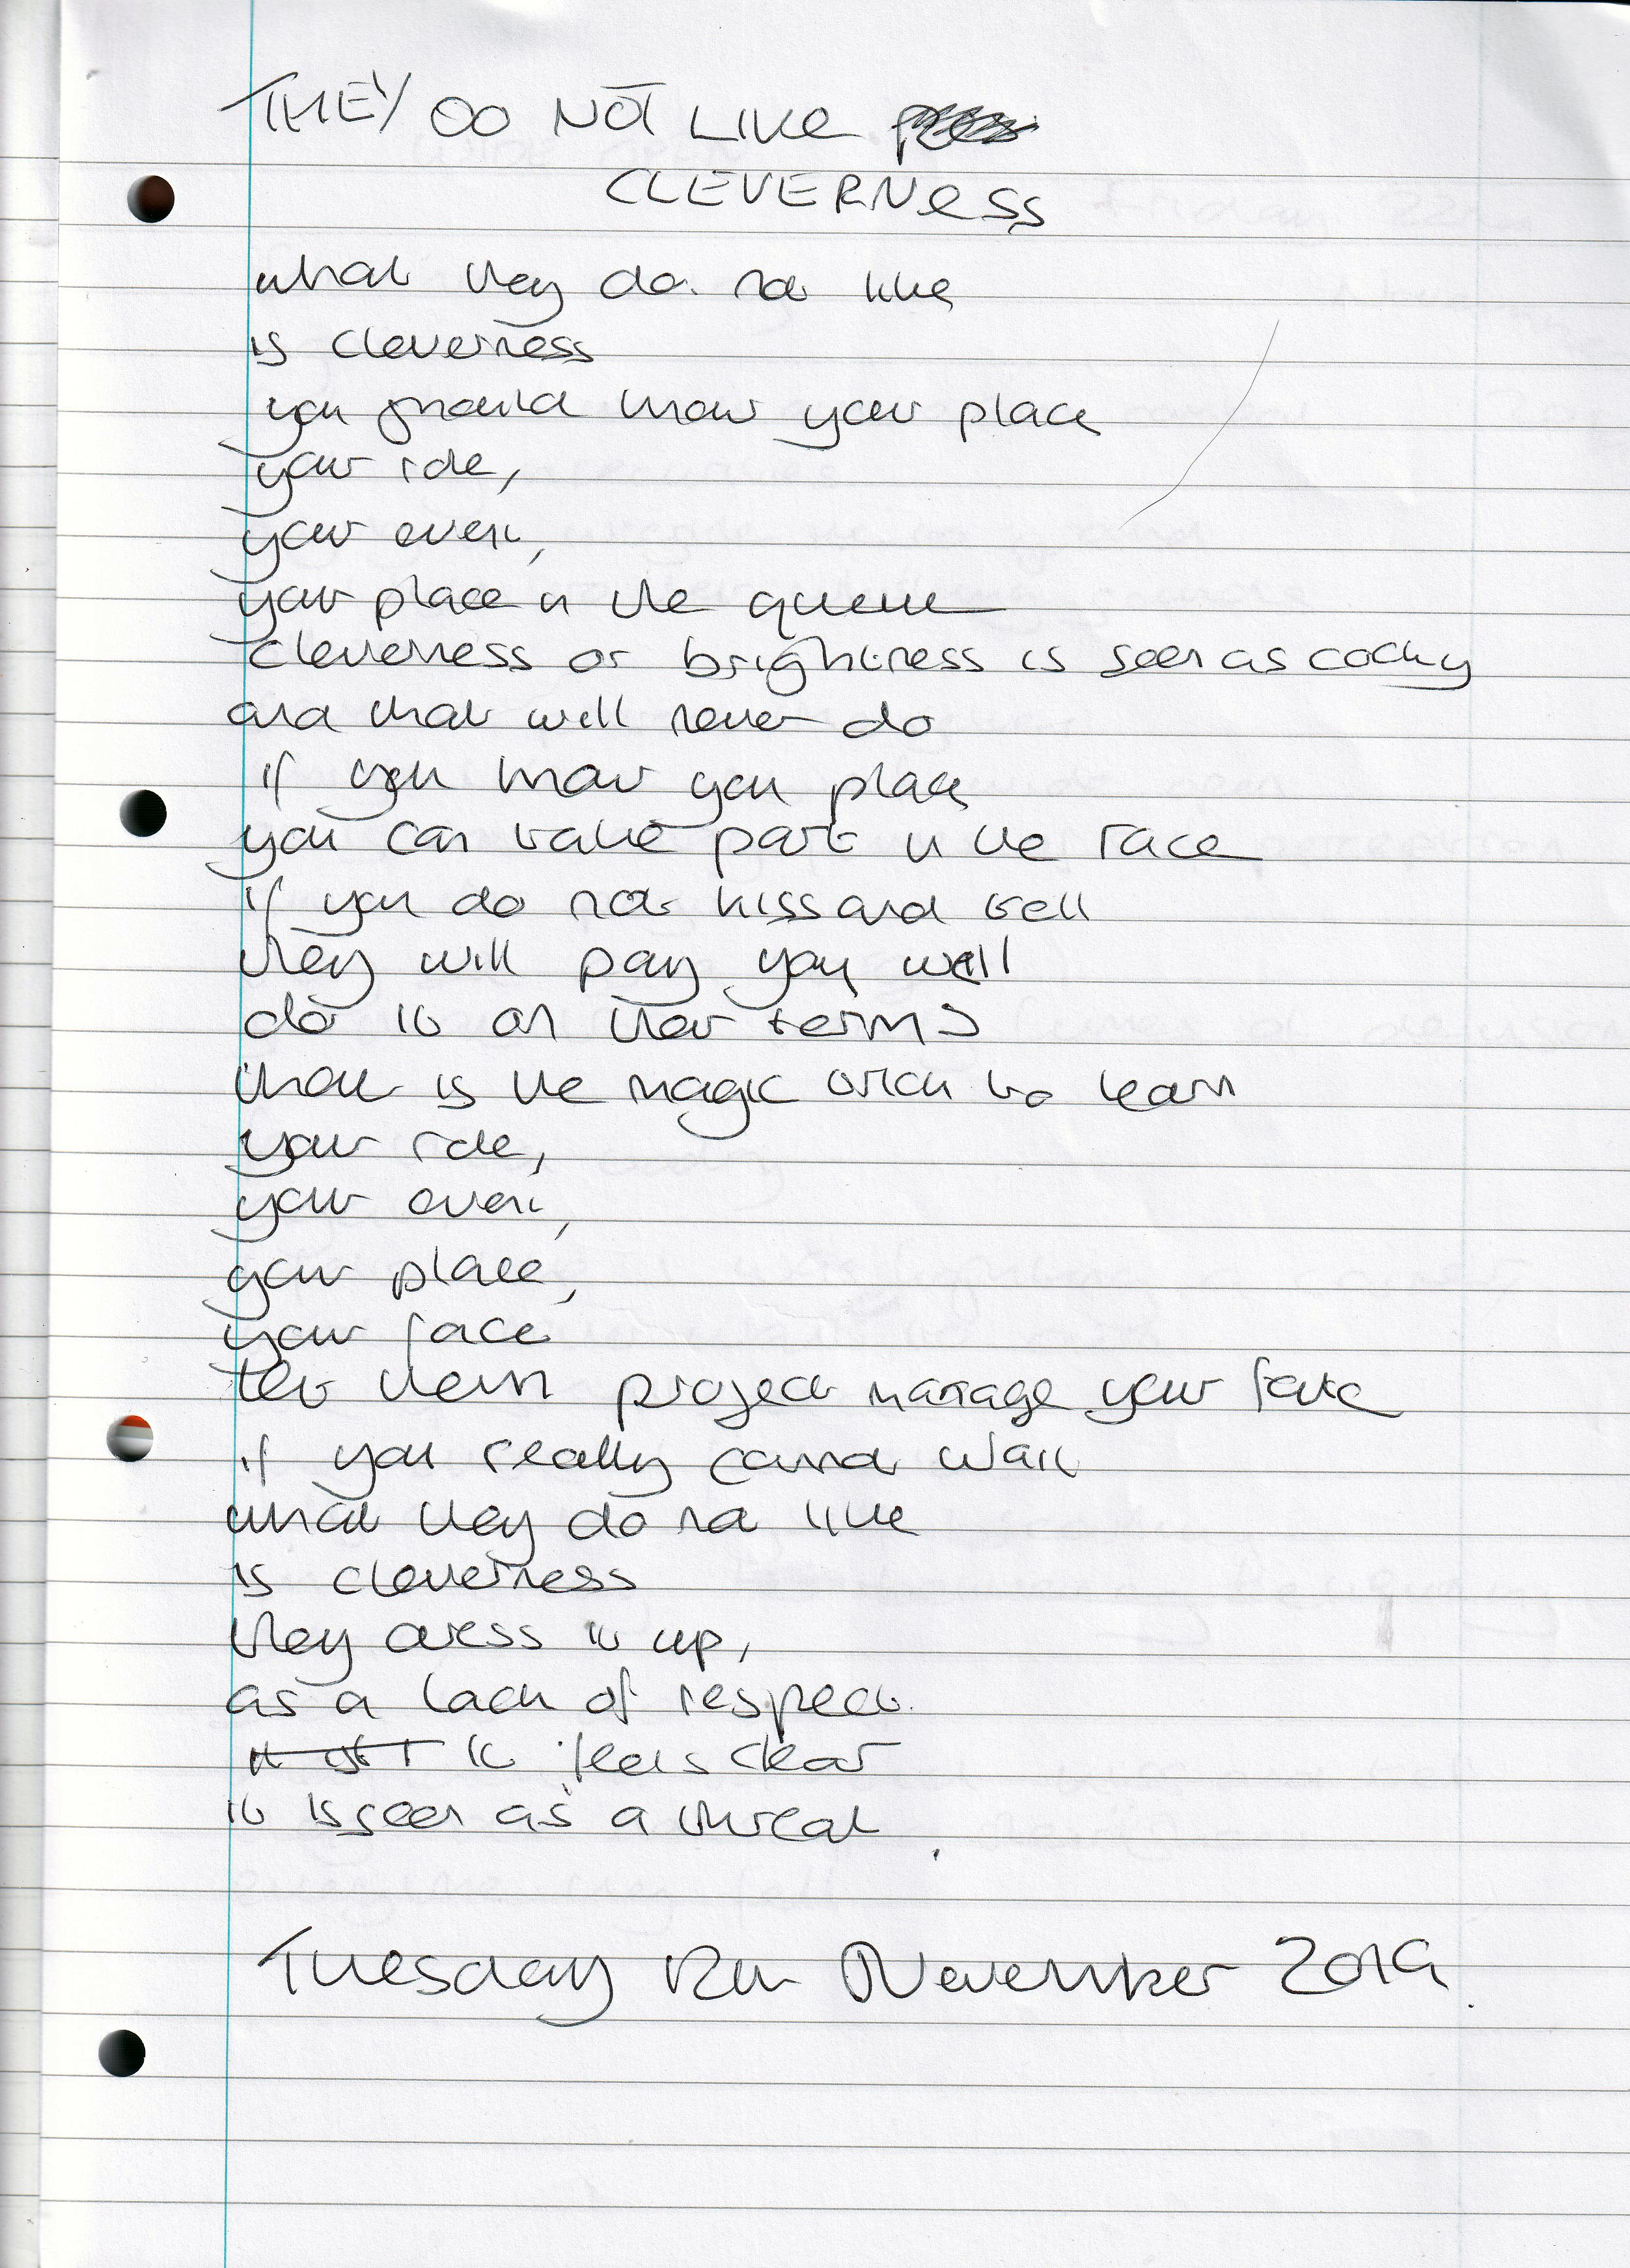 THEY DO NOT LIKE
CLEVERNESS
what they do not like
is cleverness
you should know your place
your role,
your event,
your place in the queue
cleverness or brightness is seen as cocky
and that will never do
if you know you place
you can take part in the race
if you do not kiss and tell
they will pay you well
do it on their terms
that is the magic trick to learn
your role,
your event,
your place,
your face
let them project manage your fate
if you really cannot wait
what they do not like
is cleverness
they dress it up,
as a lack of respect.
it feels clear
it is seen as a threat.
Tuesday 12th November 2019.